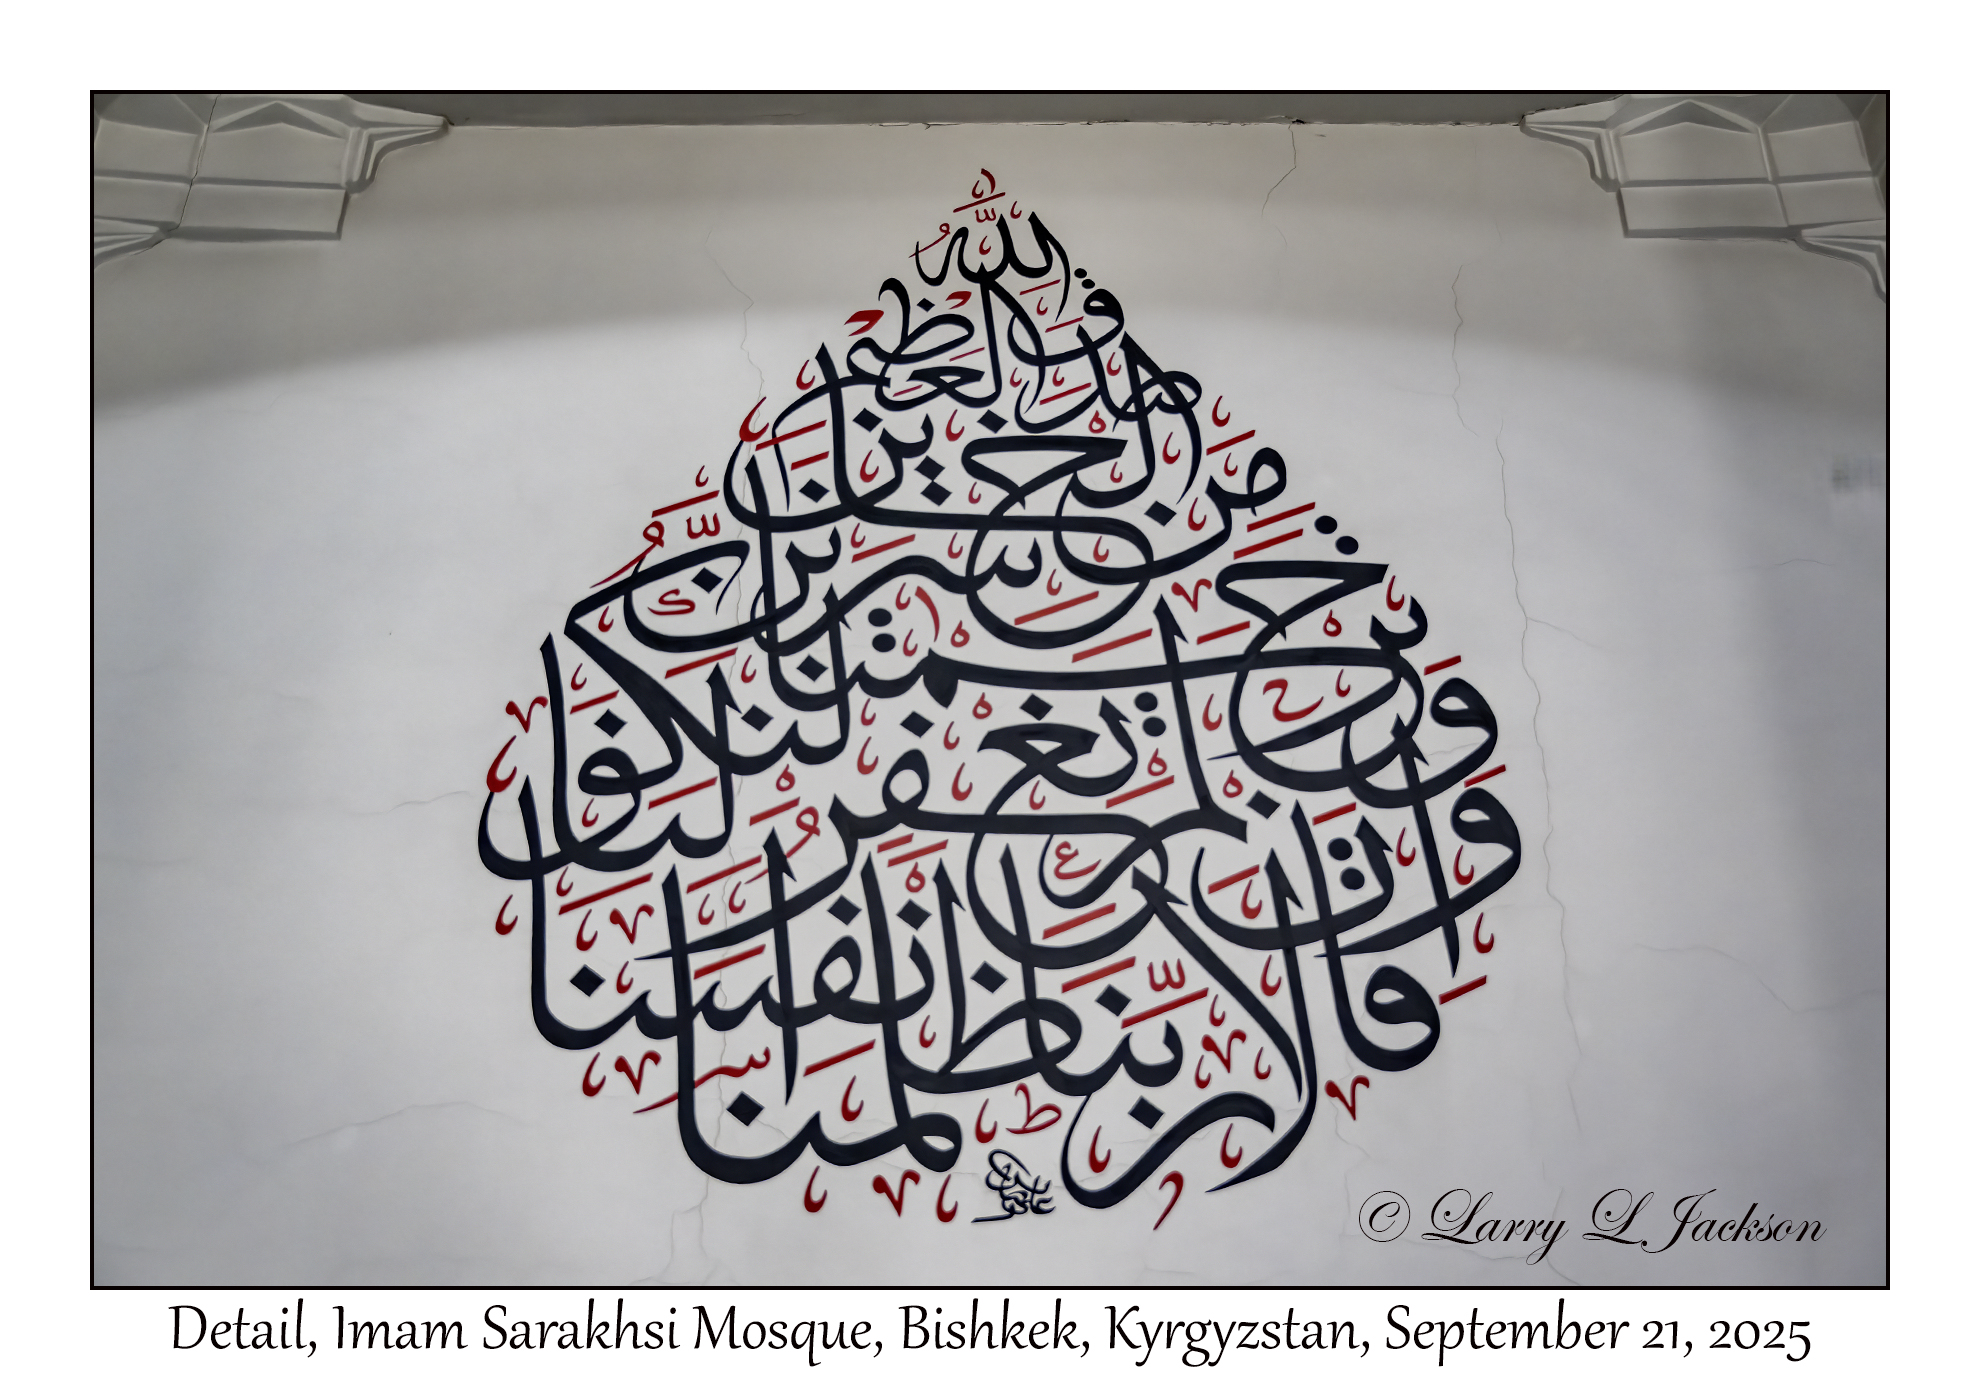 قالا ربنا ظلمنا انفسنا
وان لم تغفر لنا
وترحمنا لنكونن
من الخسرين
صدق الله العظيم
© Larry L Jackson
Detail, Imam Sarakhsi Mosque, Bishkek, Kyrgyzstan, September 21, 2025